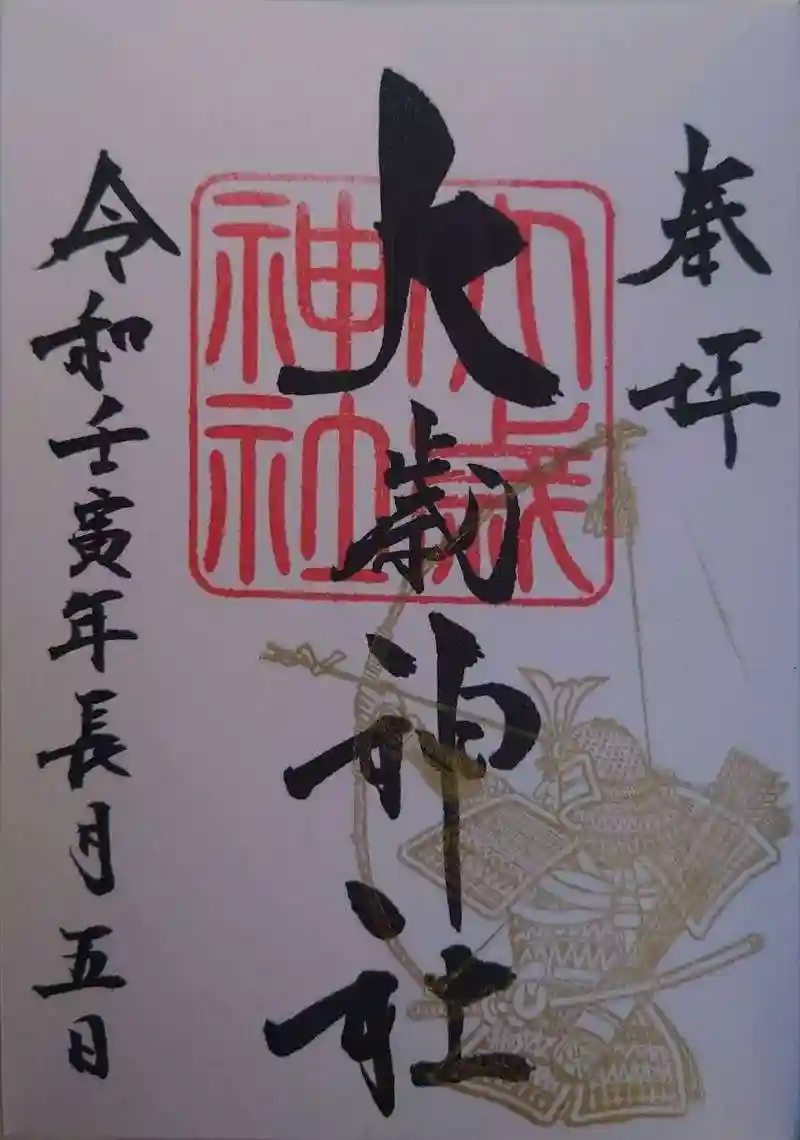 奉拝
大歳神社
大歳神社
令和壬寅年長月五日